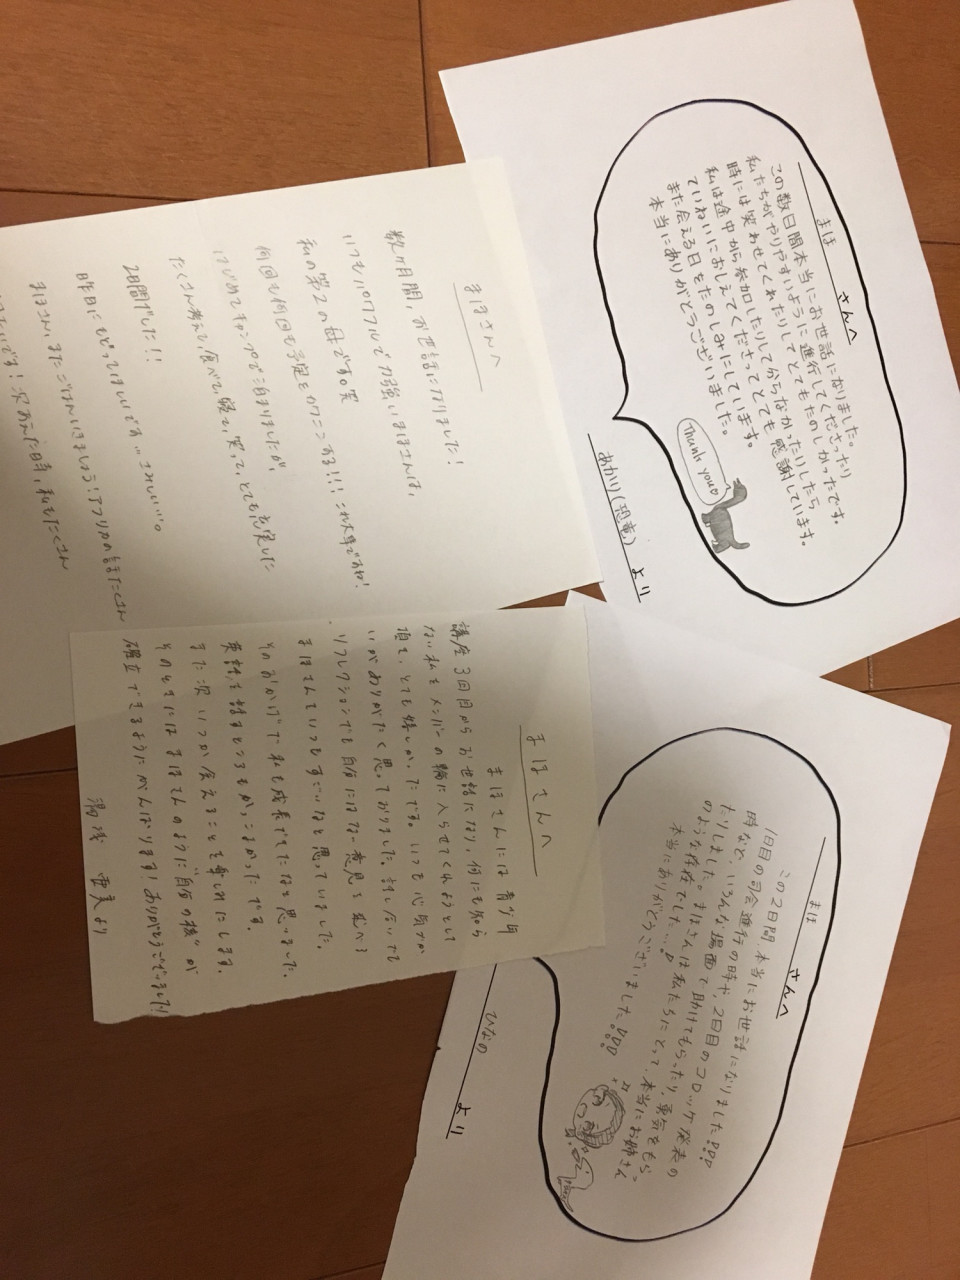 まほさんへ
この数日間本当にお世話になりました。
私たちがやりやすいように進行してくださったり
時には笑わせてくれたりしてとてもたのしかったです。
私は途中から参加したりしてからなかったりしたら
ていねいにおしえてくださってとても感謝しています。
また会える日をたのしみにしています。
本当にありがとうございました。
Thank you
あかり(恐竜)より
まほさんへ
数ヶ月間、お世話になりました!
いつもパワフルで力強いまほさんは、
私の第2の母です。笑
何回も何回も予定をカクニンする!!!これ大事ですね!
はじめてキャンプで泊まりましたが、
たくさん考えて、食べて、寝て、笑って、とても充実した
2日間でした!!
昨日にもどってほしいです。さみしい…。
まほさん、またごはんいきましょう!アフリカの話またたくさん
たいです!次あえた日時、私もたくさん
まほさんへ
まほさんには青少年
講座3回目からお世話になり、何にも知ら
ない私をメンバーの輪に入らせてくれようとして
頂いて、とても嬉しかったです。いつも心気づか
いがありがたく思っておりました。話し合いでも
リフレクションでも自分にはない意見を述べる
まほさんていつもすごいなと思っていました。
そのおかげで私も成長できたなと思いました。
英語を話すところもかっこよかったです。
また次いつか会えることを楽しみにします。
そのときにはまほさんのように"自分の核"が
確立できるようにがんばります!ありがとうございました!
より
まほさんへ
この2日間、本当にお世話になりました!!!
1日目の司会進行の時や、2日目のコロッケ発表の
時など、いろんな場面で助けてもらったり、勇気をもらっ
たりしました。まほさんは私たちにとって、本当にお姉さん
のような存在でした…!
本当にありがとうございました!!!
ひなのより